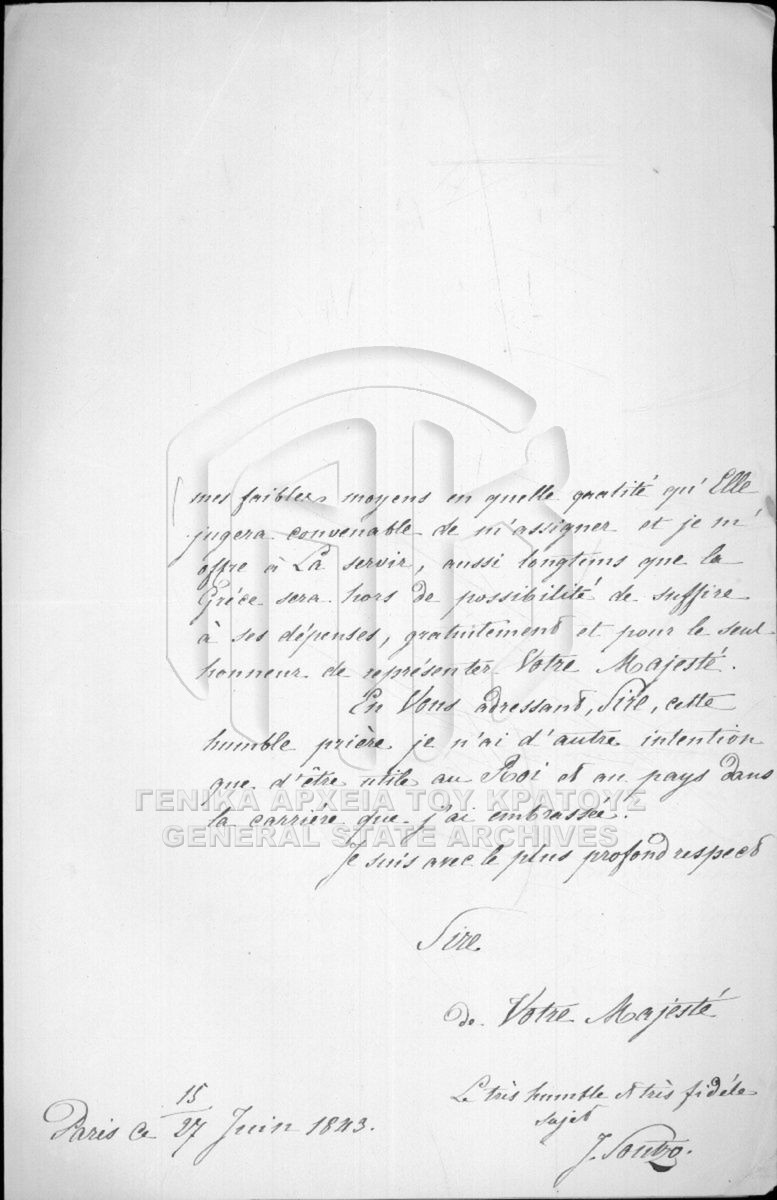 mes faibles moyens en quelle qualité qu'Elle
jugera convenable de m'assigner et je m'
offre à La servir, aussi longtems que la
Grèce sera hors de possibilité de suffire
à ses dépenses, gratuitement et pour le seul
honneur de représenter Votre Majesté.
En Vous adressant, Sire, cette
humble prière je n'ai d'autre intention
que d'être utile au Roi et au pays dans
la carrière que j'ai embrassée.
ΓΕΝΙΚΑ ΑΡΧΕΙΑ ΤΟΥ ΚΡΑΤΟΥΣ
GENERAL STATE ARCHIVES
Je suis avec le plus profond respect
Sire
de Votre Majesté
Le très humble et très fidèle
sujet
J. Soutzo.
Paris ce 15/27 Juin 1843.